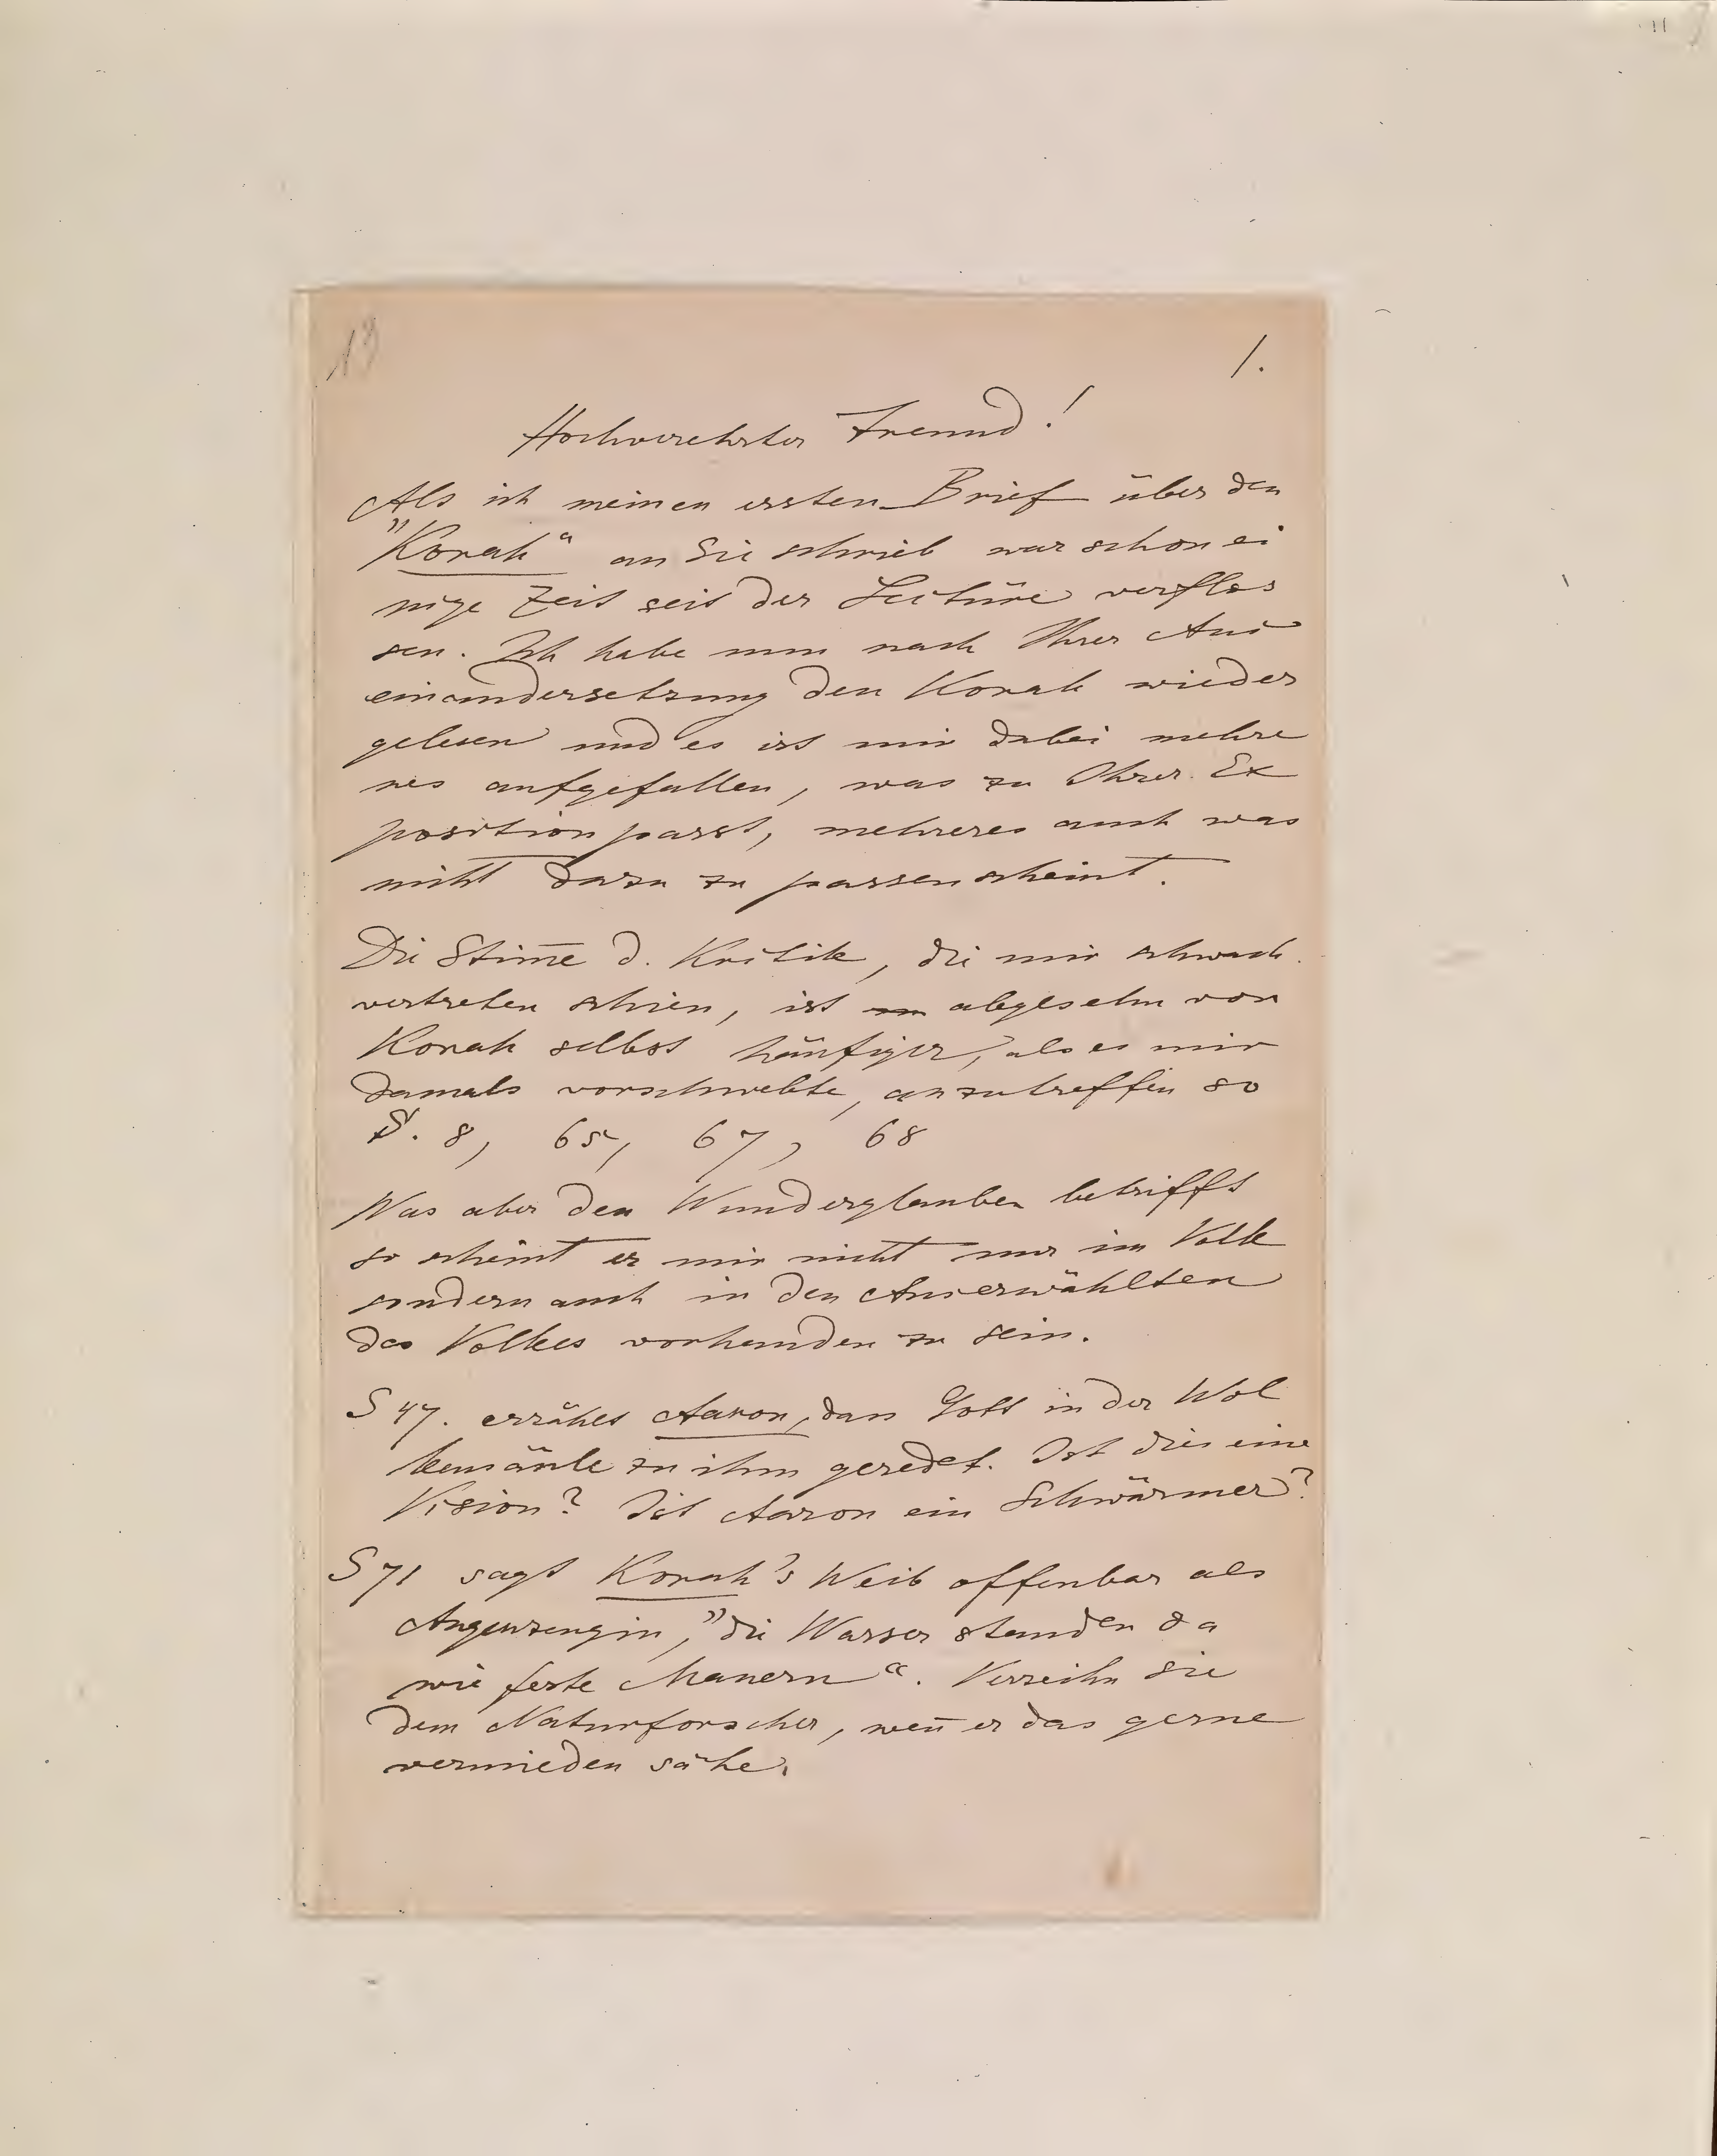 13
1.
Hochverehrter Freund!
Als ich meinen ersten Brief über den
"Korah" an Sie schrieb war schon ei
nige Zeit seit der Lectüre verflos
sen. Ich habe nun nach Ihrer Aus
einandersetzung den Korah wieder
gelesen und es ist mir dabei mehre
res aufgefallen, was zu Ihrer Ex
position passt, mehreres auch was
nicht dazu zu passen scheint.
Die Stim̅e d. Kritik, die mir schwach
vertreten schien, ist abgesehn von
Korah selbst häufiger, als es mir
damals vorschwebte, anzutreffen so
S. 8, 65, 67, 68
Was aber den Wunderglauben betrifft
so scheint er mir nicht nur im Volk
sondern auch in den Auserwählten
des Volkes vorhanden zu sein.
S 47. erzählt Aaron, dass Gott in der Wol
kensäule zu ihm geredet. Ist dies eine
Vision? Ist Aaron ein Schwärmer?
S 71 sagt Korah's Weib offenbar als
Augenzeugin, "die Wasser standen da
wie feste Mauern". Verzeihn Sie
dem Naturforscher, wen̅ er das gerne
vermieden sähe.